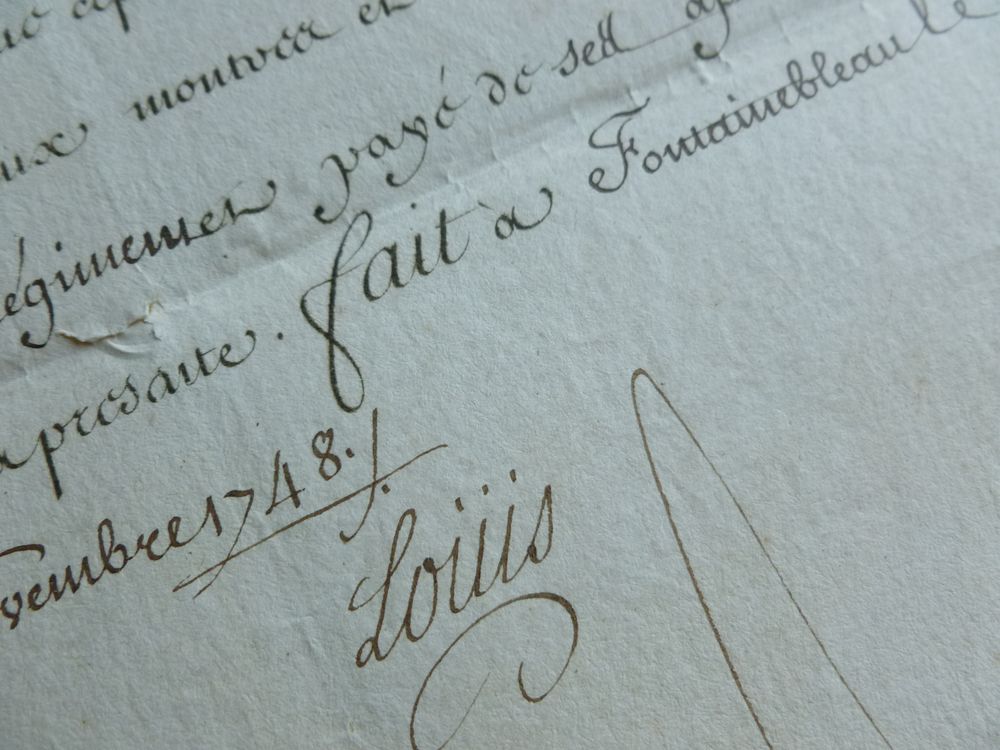 monter en
régiment payé de sed
aprésante. fait à Fontainebleau le
vembre 1748.
Louis